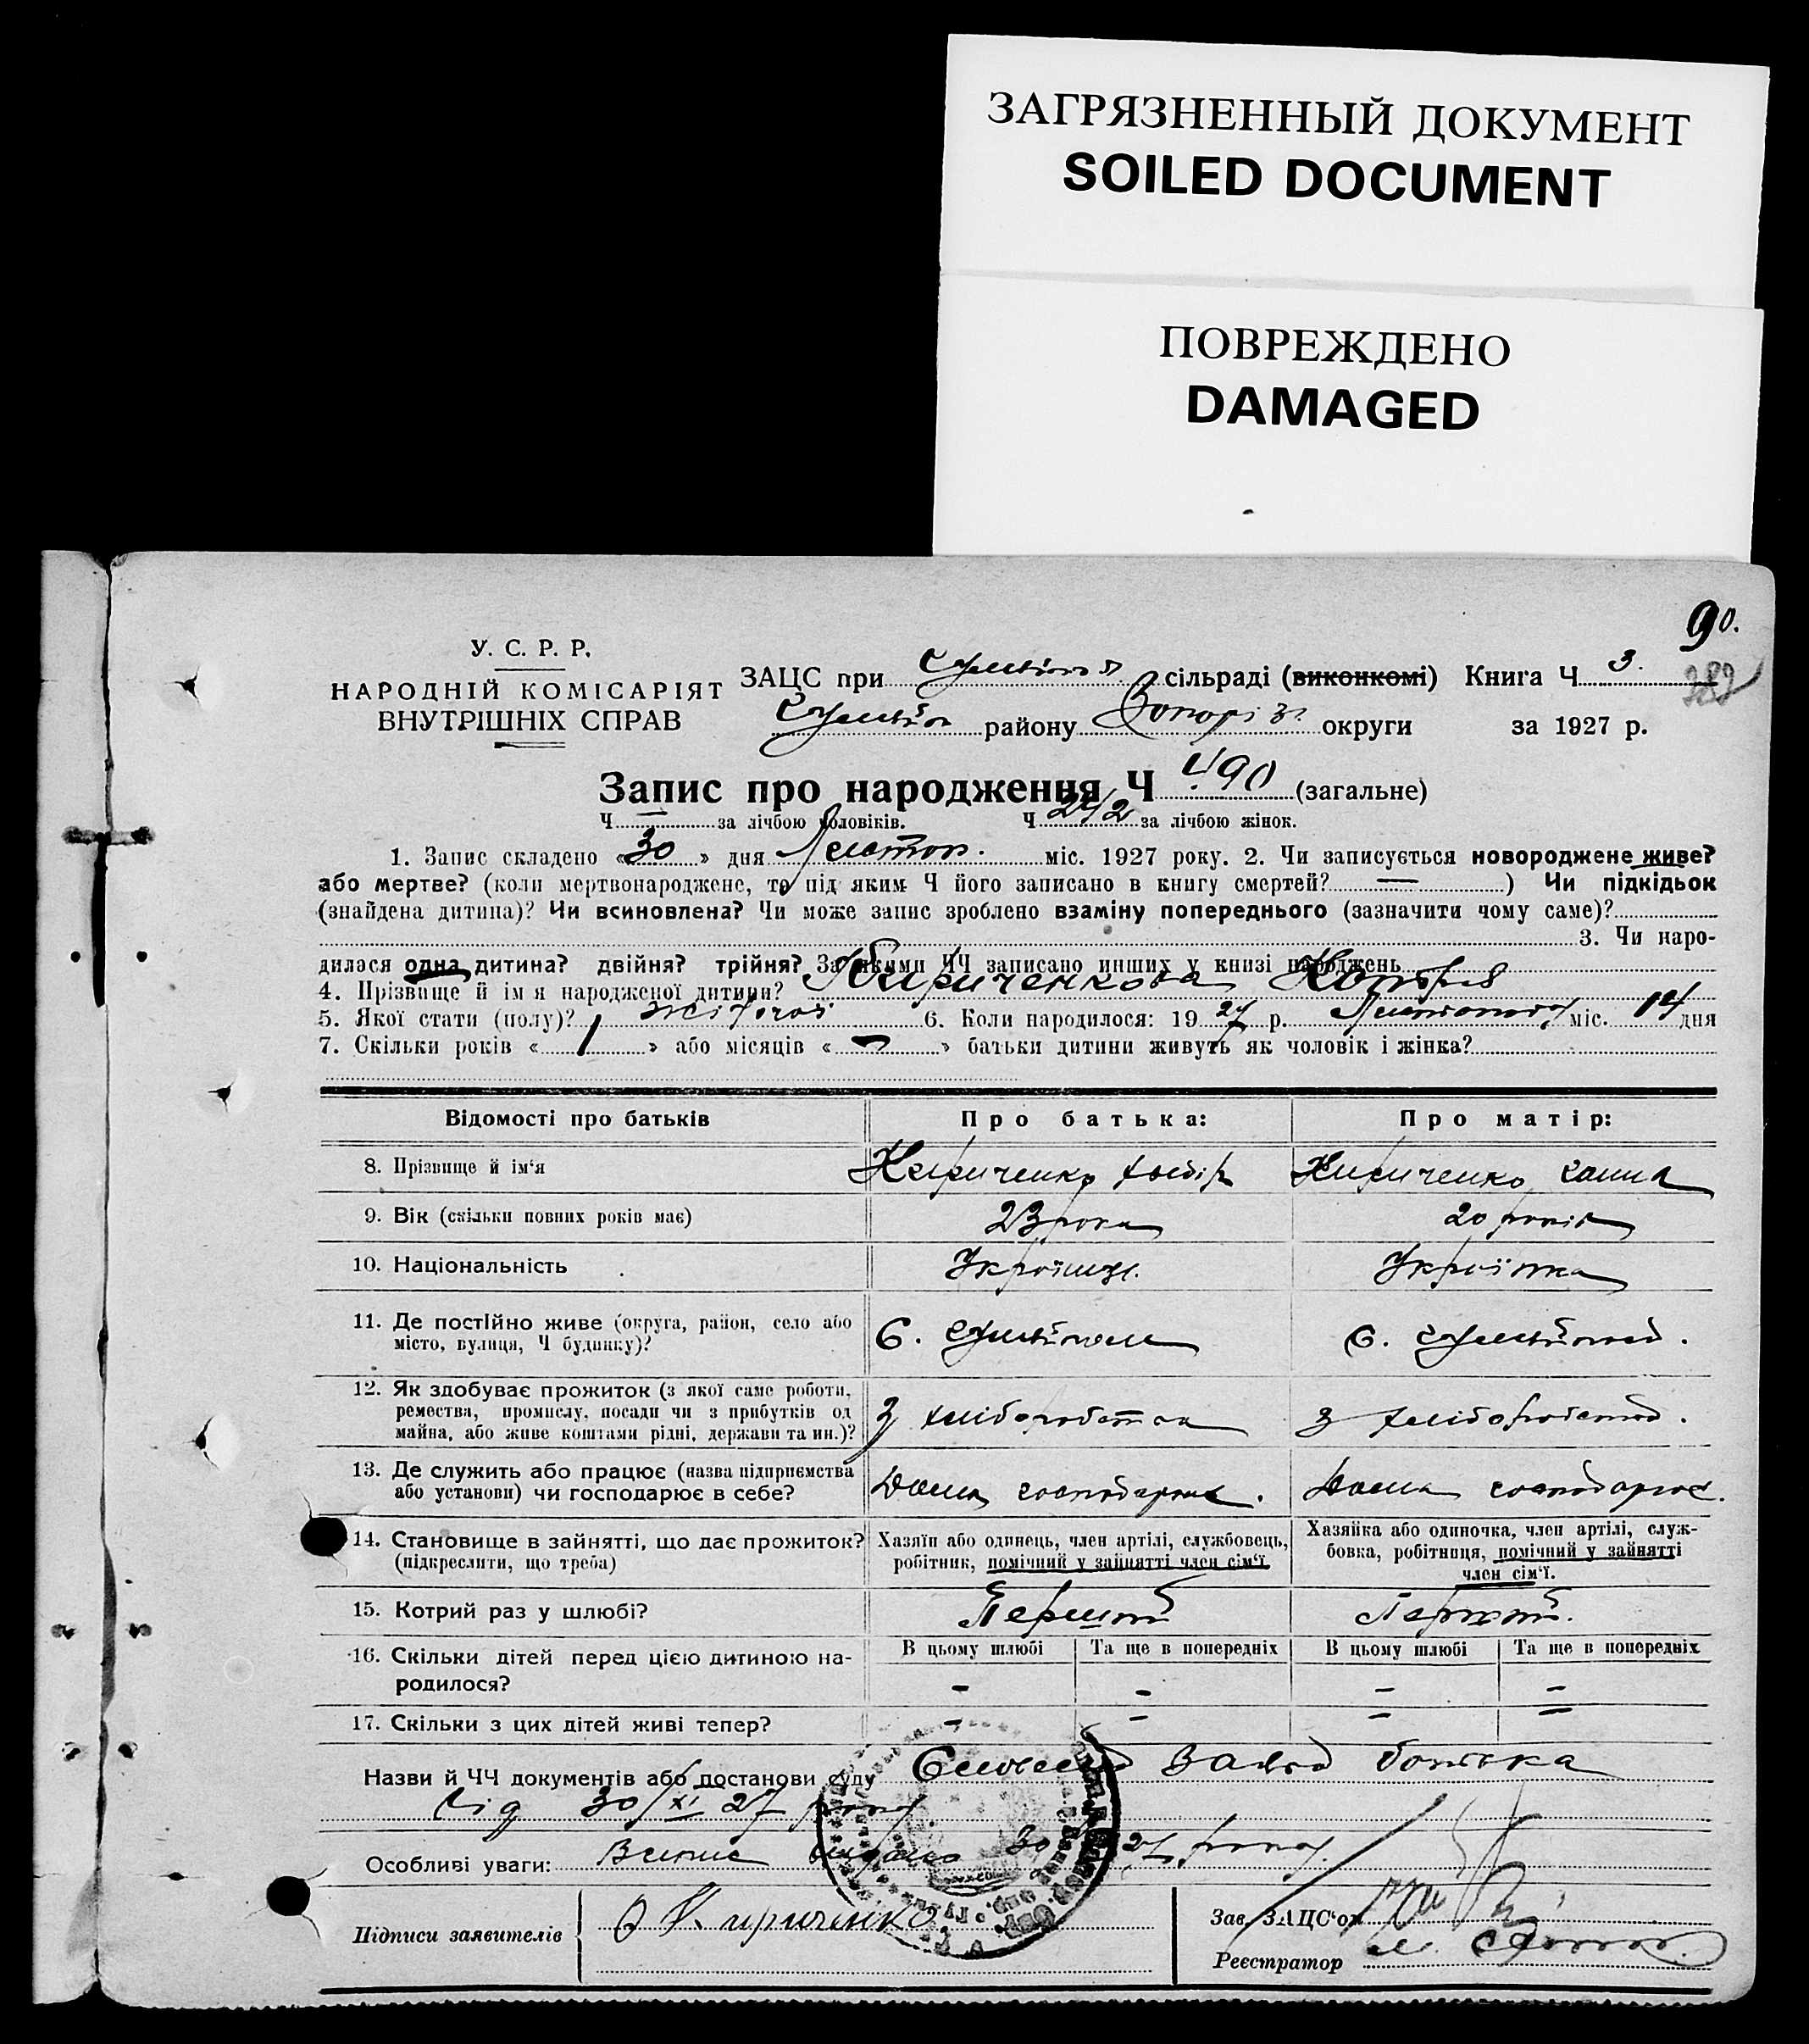 ЗАГРЯЗНЕННЫЙ ДОКУМЕНТ
SOILED DOCUMENT
ПОВРЕЖДЕНО
DAMAGED
90.
У. С. Р. Р.
НАРОДНІЙ КОМІСАРІЯТ
ВНУТРІШНІХ СПРАВ
ЗАЦС при сільраді (виконкомі) Книга Ч 3.
району округи за 1927 р.
Запис про народження Ч 490 (загальне)
Ч — за лічбою чоловіків. Ч 242 за лічбою жінок.
1. Запис складено «30» дня Листоп. міс. 1927 року. 2. Чи записується новороджене живе?
або мертве? (коли мертвонароджене, то під яким Ч його записано в книгу смертей? — ) Чи підкідьок
(знайдена дитина)? Чи всиновлена? Чи може запис зроблено взаміну попереднього (зазначити чому саме)?
3. Чи наро-
дилася одна дитина? двійня? трійня? За якими ЧЧ записано инших у книзі народжень
4. Прізвище й ім'я народженої дитини? Кириченкова
5. Якої стати (полу)? 6. Коли народилося: 1927 р. Листопада міс. 14 дня
7. Скільки років «1» або місяців «—» батьки дитини живуть як чоловік і жінка?
Відомості про батьків Про батька: Про матір:
8. Прізвище й ім'я Кириченко Кириченко Ганна
9. Вік (скільки повних років має) 23 роки 20 років
10. Національність Українец. Українка
11. Де постійно живе (округа, район, село або
місто, вулиця, Ч будинку)? С. С.
12. Як здобуває прожиток (з якої саме роботи,
ремества, промислу, посади чи з прибутків од
майна, або живе коштами рідні, держави та ин.)? З хліборобства З хліборобства.
13. Де служить або працює (назва підприємства
або установи) чи господарює в себе? Дома господарює. Дома господарює.
14. Становище в зайнятті, що дає прожиток?
(підкреслити, що треба)
Хазяїн або одинець, член артілі, службовець,
робітник, помічний у зайнятті член сім'ї
Хазяйка або одиночка, член артілі, служ-
бовка, робітниця, помічний у зайнятті
член сім'ї.
15. Котрий раз у шлюбі? Перший Перший.
16. Скільки дітей перед цією дитиною на-
родилося?
В цьому шлюбі Та ще в попередніх В цьому шлюбі Та ще в попередніх
– – – –
17. Скільки з цих дітей живі тепер? – – – –
Назви й ЧЧ документів або постанови суду батька
від 30/XI 27 року
Особливі уваги: Випис видано 30 27 року.
Підписи заявителів Кириченко
Зав. ЗАЦС'ом
Реєстратор